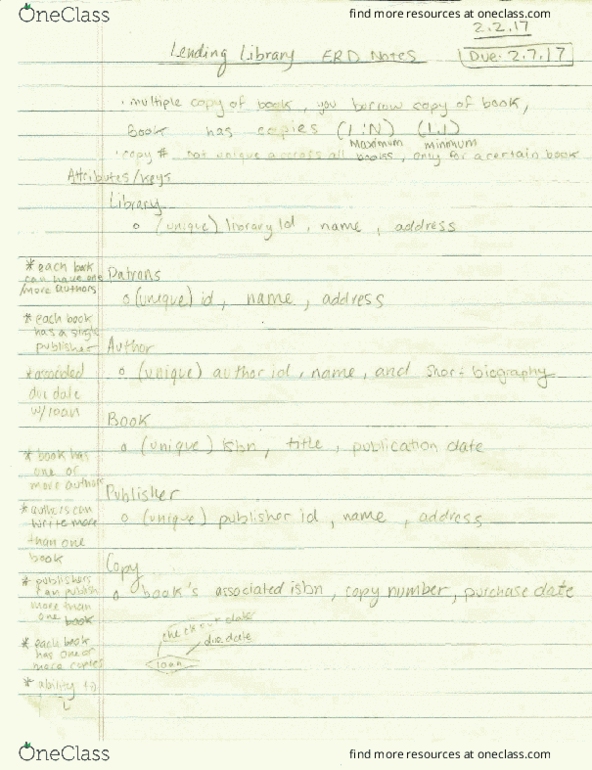 OneClass
find more resources at oneclass.com
2.2.17
Lending Library ERD Notes
Due: 2.7.17
· multiple copy of book, you borrow copy of book,
Book has copies (1:N) (1,1)
Maximum minimum
· copy # not unique accross all books, only for a certain book
Attributes/keys
Library
o (unique) library id, name, address
* each book
can have one
/more authors
Patrons
o (unique) id, name, address
* each book
has a single
publisher
Author
o (unique) author id, name, and short biography
* associated
due date
w/loan
Book
o (unique) isbn, title, publication date
* book has
one or
more author
Publisher
o (unique) publisher id, name, address
* authors can
write more
than one
book
Copy
o book's associated isbn, copy number, purchase date
* publishers
can publish
more than
one book
check out date
due date
loan
* each book
has one or
more copies
* ability to
OneClass
find more resources at oneclass.com